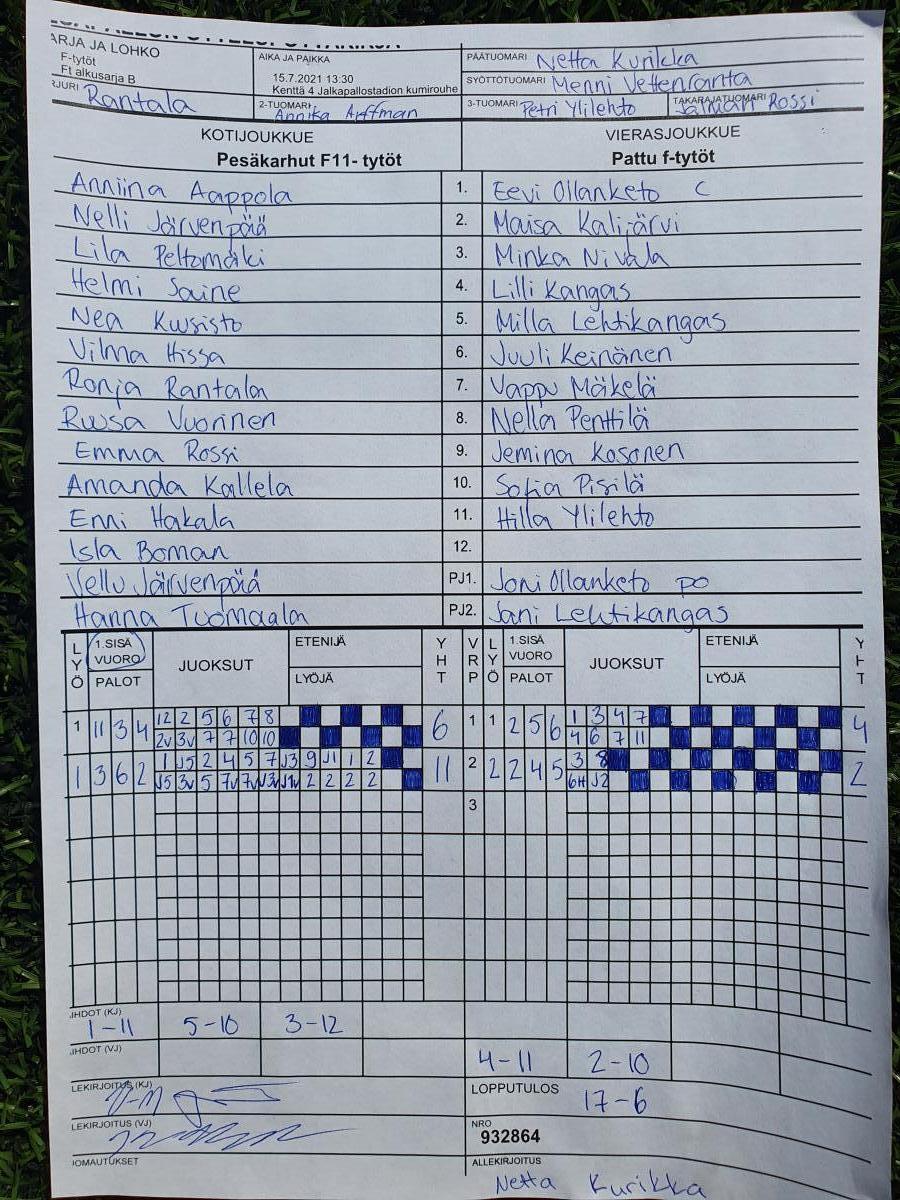 ARJA JA LOHKO
F-tytöt
Ft alkusarja B
AIKA JA PAIKKA
15.7.2021 13:30
Kenttä 4 Jalkapallostadion kumirouhe
PÄÄTUOMARI Netta Kurikka
SYÖTTÖTUOMARI Menni Vettenranta
Rantala
2-TUOMARI Annika Arffman
3-TUOMARI Petri Ylilehto
TAKARAJATUOMARI Jalmari Rossi
KOTIJOUKKUE VIERASJOUKKUE
Pesäkarhut F11- tytöt Pattu f-tytöt
Anniina Aappola 1. Eevi Ollanketo C
Nelli Järvenpää 2. Maisa Kalijärvi
Lila Peltomäki 3. Minka Nivala
Helmi Saine 4. Lilli Kangas
Nea Kuusisto 5. Milla Lehtikangas
Vilma Hissa 6. Juuli Keinänen
Ronja Rantala 7. Vappu Mäkelä
Ruusa Vuorinen 8. Nella Penttilä
Emma Rossi 9. Jemina Kosonen
Amanda Kallela 10. Sofia Pisilä
Enni Hakala 11. Hilla Ylilehto
Isla Boman 12.
Vellu Järvenpää PJ1. Joni Ollanketo po
Hanna Tuomaala PJ2. Jani Lehtikangas
LYÖ 1.SISÄ VUORO PALOT JUOKSUT ETENIJÄ LYÖJÄ YHT VRP LYÖ 1.SISÄ VUORO PALOT JUOKSUT ETENIJÄ LYÖJÄ YHT
1 11 3 4 12 2 5 6 7 8 6 1 1 2 5 6 1 3 4 7 4
2v 3v 7 7 10 10 4 6 7 11
1 3 6 2 1 J5 2 4 5 7 J3 9 J1 1 2 11 2 2 2 4 5 3 8 2
J5 3v 5 7v 7v J3v J1v 2 2 2 2 6H J2
3
1-11 5-10 3-12
4-11 2-10
LOPPUTULOS
17-6
NRO
932864
ALLEKIRJOITUS
Netta Kurikka